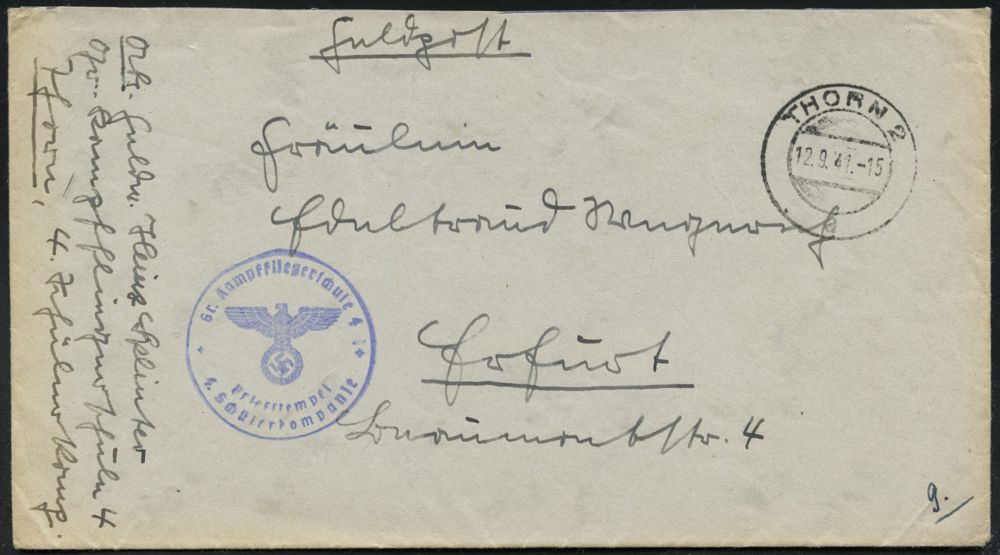 Feldpost
THORN 2
12.9.41.-15
a
Fräulein
Edeltraud
Erfurt
Beaumontstr. 4
Gr. Kampffliegerschule 4
Briefstempel
4. Schülerkompanie
Abs. Feldw. Heinz Splinter
Gr. Kampffliegerschule 4
Thorn, 4. Schülerkomp.
9.